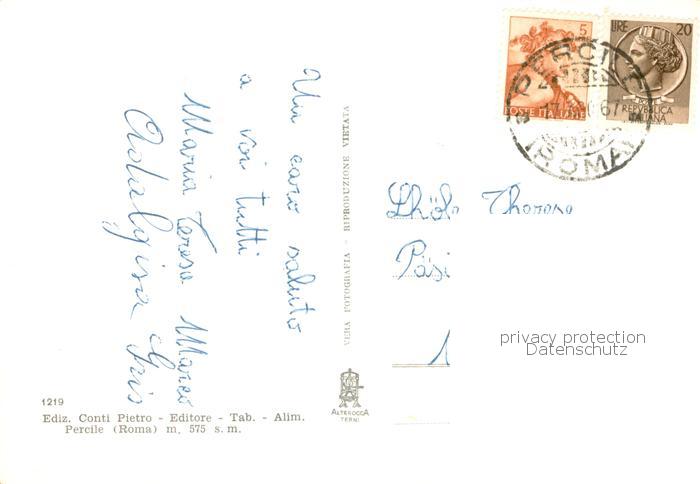 Un caro saluto
a voi tutti
Maria Teresa Marco
Adalgisa
VERA FOTOGRAFIA - RIPRODUZIONE VIETATA
5
POSTE ITALIANE
LIRE 20
REPVBBLICA
ITALIANA
PERCILE
ROMA
privacy protection
Datenschutz
1219
Ediz. Conti Pietro - Editore - Tab. - Alim.
Percile (Roma) m. 575 s. m.
ALTEROCCA
TERNI